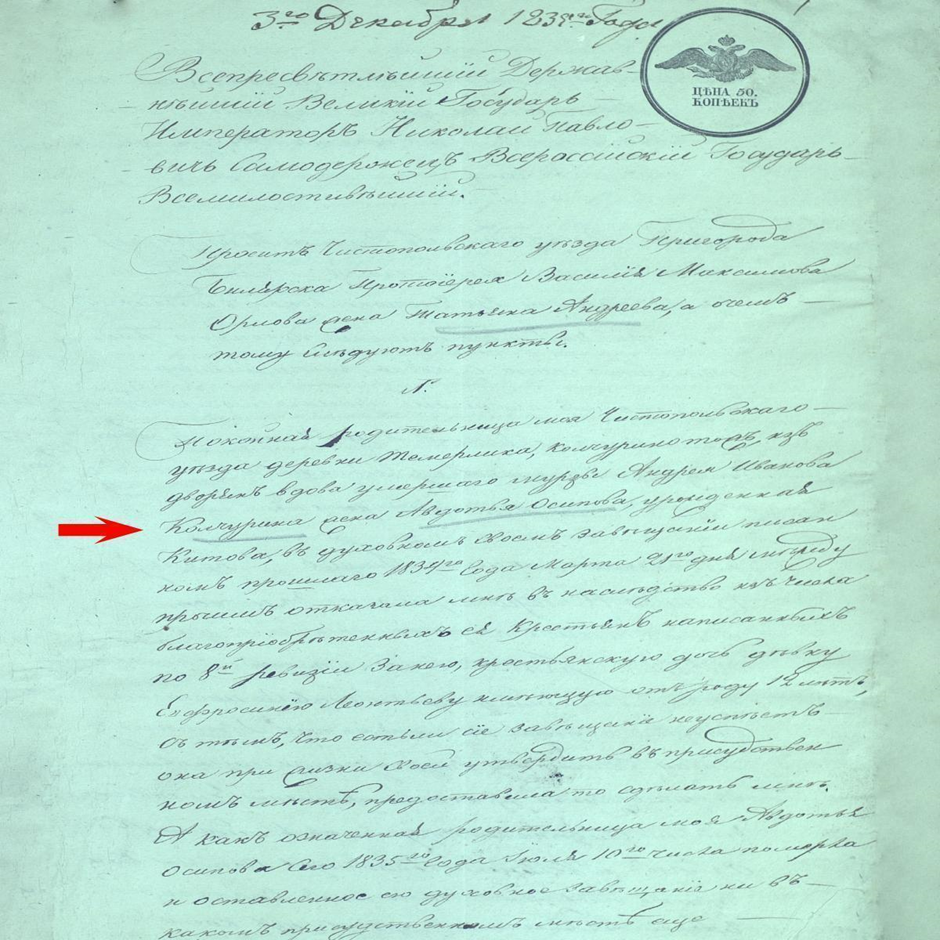 3го Декабря 1839го Года
ЦѢНА 50.
КОПѢЕКЪ
Всепресвѣтлѣйшій Держав-
нѣйшій Великій Государь
Императоръ Николай Павло-
вичь Самодержецъ Всероссійскій Государь
Всемилостивѣйшій.
Проситъ Чистопольскаго уѣзда Пригорода
Билярска Протоіерея Василія Максимова
Орлова жена Татьяна Андреева, а очемъ
тому слѣдуютъ пункты.
Покойная родительница моя Чистопольскаго
уѣзда деревни изъ
дворянъ вдова умершаго мурзы Андрея Иванова
Колчурина жена Авдотья Осипова, урожденная
Китова, въ духовномъ своемъ завѣщаніи писан
номъ прошлаго 1834го Года Марта 21го дня между
прьчимъ откачала мнѣ въ наслѣдство изъ числа
благопріобрѣтенныхъ ея Крестьянъ написанныхъ
по 8й ревизіи за нею, крестьянскую дочь дѣвку
Ефросинію Леонтьеву имѣющую отъ роду 12 лѣтъ,
съ тѣмъ, что естьли сіе завѣщаніе неуспѣетъ
она при жизни своей утвердить въ присудствен
номъ мѣстѣ, предоставила то сдѣлать мнѣ.
А какъ означенная родительница моя Авдотья
Осипова 1835го Года Іюля 10го числа померла
и оставленное ею духовное завѣщаніе ни въ
какомъ присудственномъ мѣстѣ еще